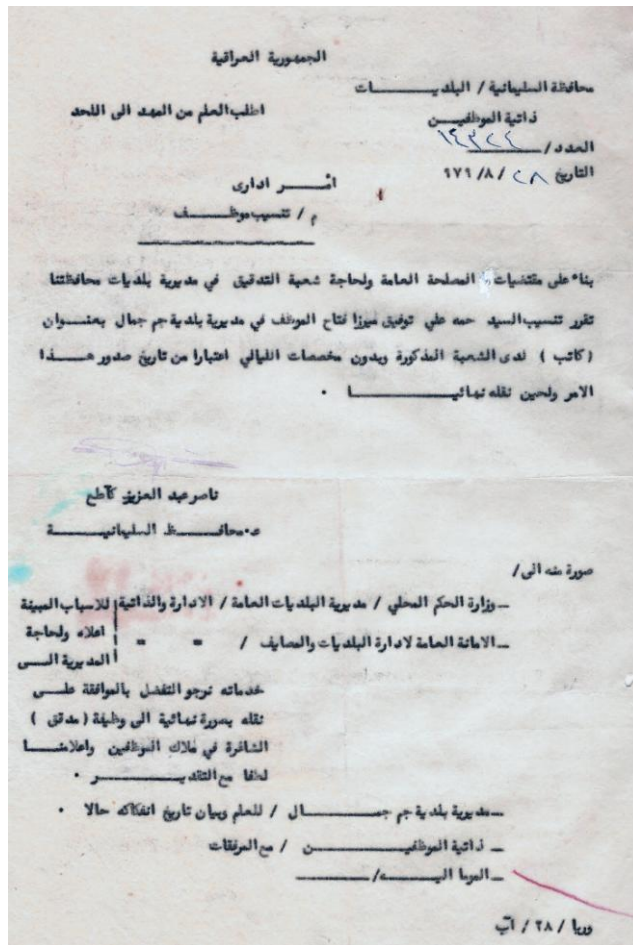 الجمهورية العراقية
محافظة السليمانية / البلديـــــات
اطلب العلم من المهد الى اللحد
ذاتية الموظفيـــن
العدد / ١٤٣٢٤
التاريخ ٢٨ / ٨/ ٩٧٩
امــر ادارى
م / تنسيب موظـــف
بناء على مقتضيات المصلحة العامة ولحاجة شعبة التدقيق في مديرية بلديات محافظتنا
تقرر تنسيب السيد حمه علي توفيق ميرزا فتاح الموظف في مديرية بلدية جم جمال بعنـــوان
( كاتب ) لدى الشعبة المذكورة وبدون مخصصات الليالي اعتبارا من تاريخ صدور هـــذا
الامر ولحين نقله نهائيـــــــا ٠
ناصر عبد العزيز كاطع
ع٠محافـــظ السليمانيـــــة
صورة منه الى /
ــ وزارة الحكم المحلي / مديرية البلديات العامة / الادارة والذاتية
ــ الامانة العامة لادارة البلديات والمصايف / = =
للاسباب المبينة
اعلاه ولحاجة
المديرية الــى
خدماته نرجو التفضل بالموافقة علــى
نقله بصورة نهائية الى وظيفة ( مدقق )
الشاغرة في ملاك الموظفين واعلامنـــا
لطفا مع التقديـــــر ٠
ــ مديرية بلدية جم جمـــــال / للعلم وبيان تاريخ انفكاكه حالا ٠
ــ ذاتية الموظفيـــــن / مع المرفقات
ــ الموما اليـــــه /
وريا / ٢٨ / آب